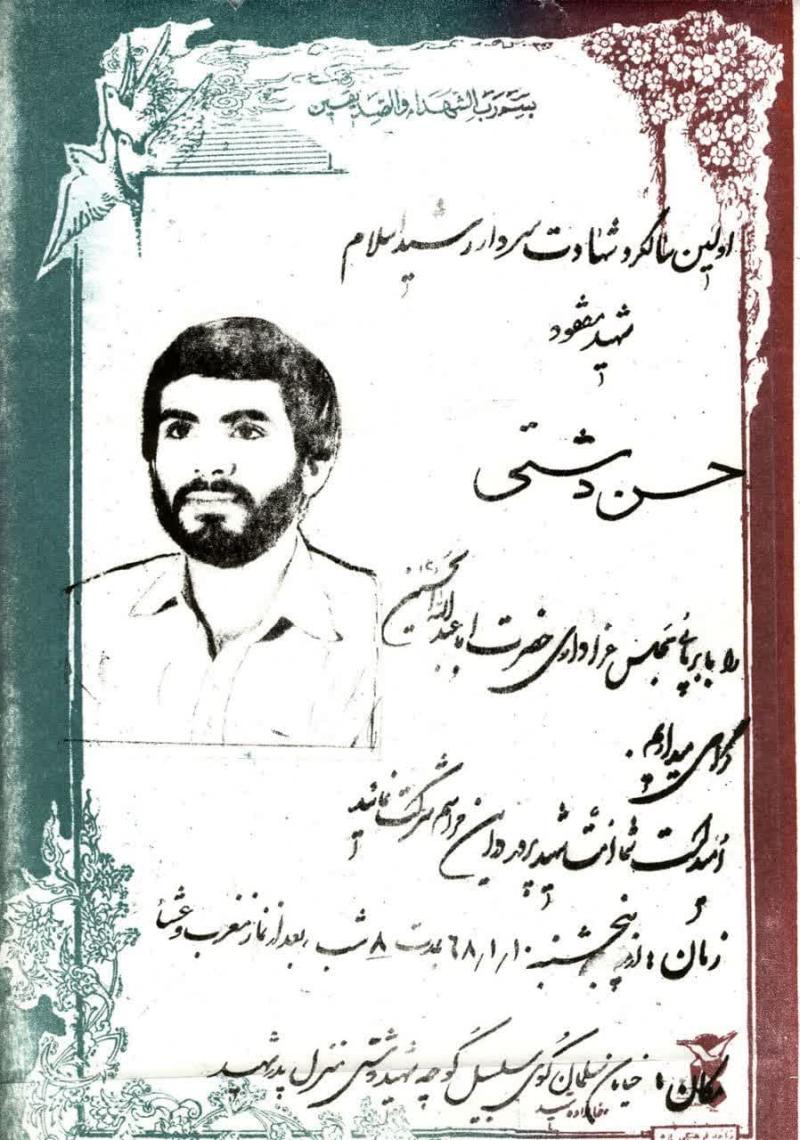 بسم رب الشهداء والصدیقین
اولین سالگرد شهادت سردار رشید اسلام
شهید مفقود
حسن دشتی
را با برپائی مجلس عزاداری حضرت اباعبدالله الحسین
گرامی میداریم.
امید است شما امت شهید پرور در این مراسم شرکت نمائید
زمان: از پنجشنبه ۶۸/۱/۱۰ بمدت ۸ شب، بعد از نماز مغرب و عشاء
مکان: خیابان سلمان کوی سلسبیل کوچه شهید دشتی منزل پدر شهید
خانواده شهید